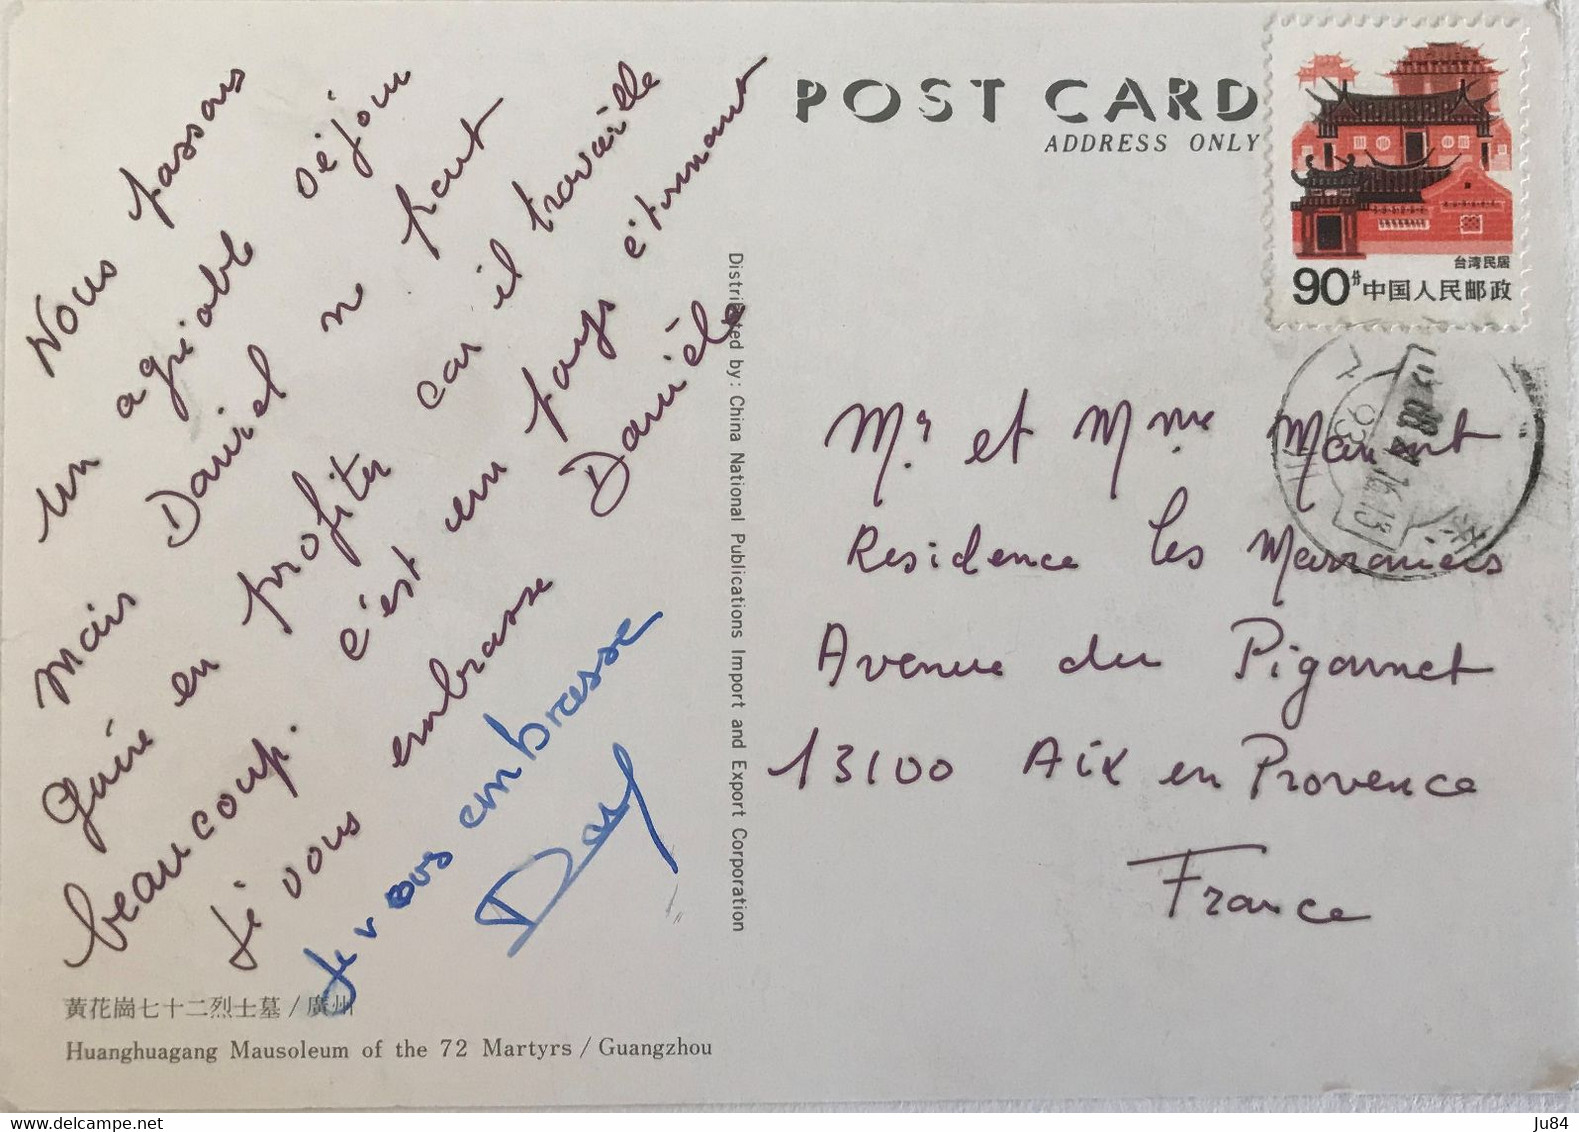 Nous passons
un agréable séjour
Mais Daniel ne peut
guère en profiter car il travaille
beaucoup. c'est un pays étonnant
Je vous embrasse Danièle
Je vous embrasse
黃花崗七十二烈士墓 / 廣州
Huanghuagang Mausoleum of the 72 Martyrs / Guangzhou
Distributed by: China National Publications Import and Export Corporation
POST CARD
ADDRESS ONLY
台湾民居
90分 中国人民邮政
Mr et Mme
Residence les Marroniers
Avenue du Pigonnet
13100 Aix en Provence
France
delcampe.net
Ju84